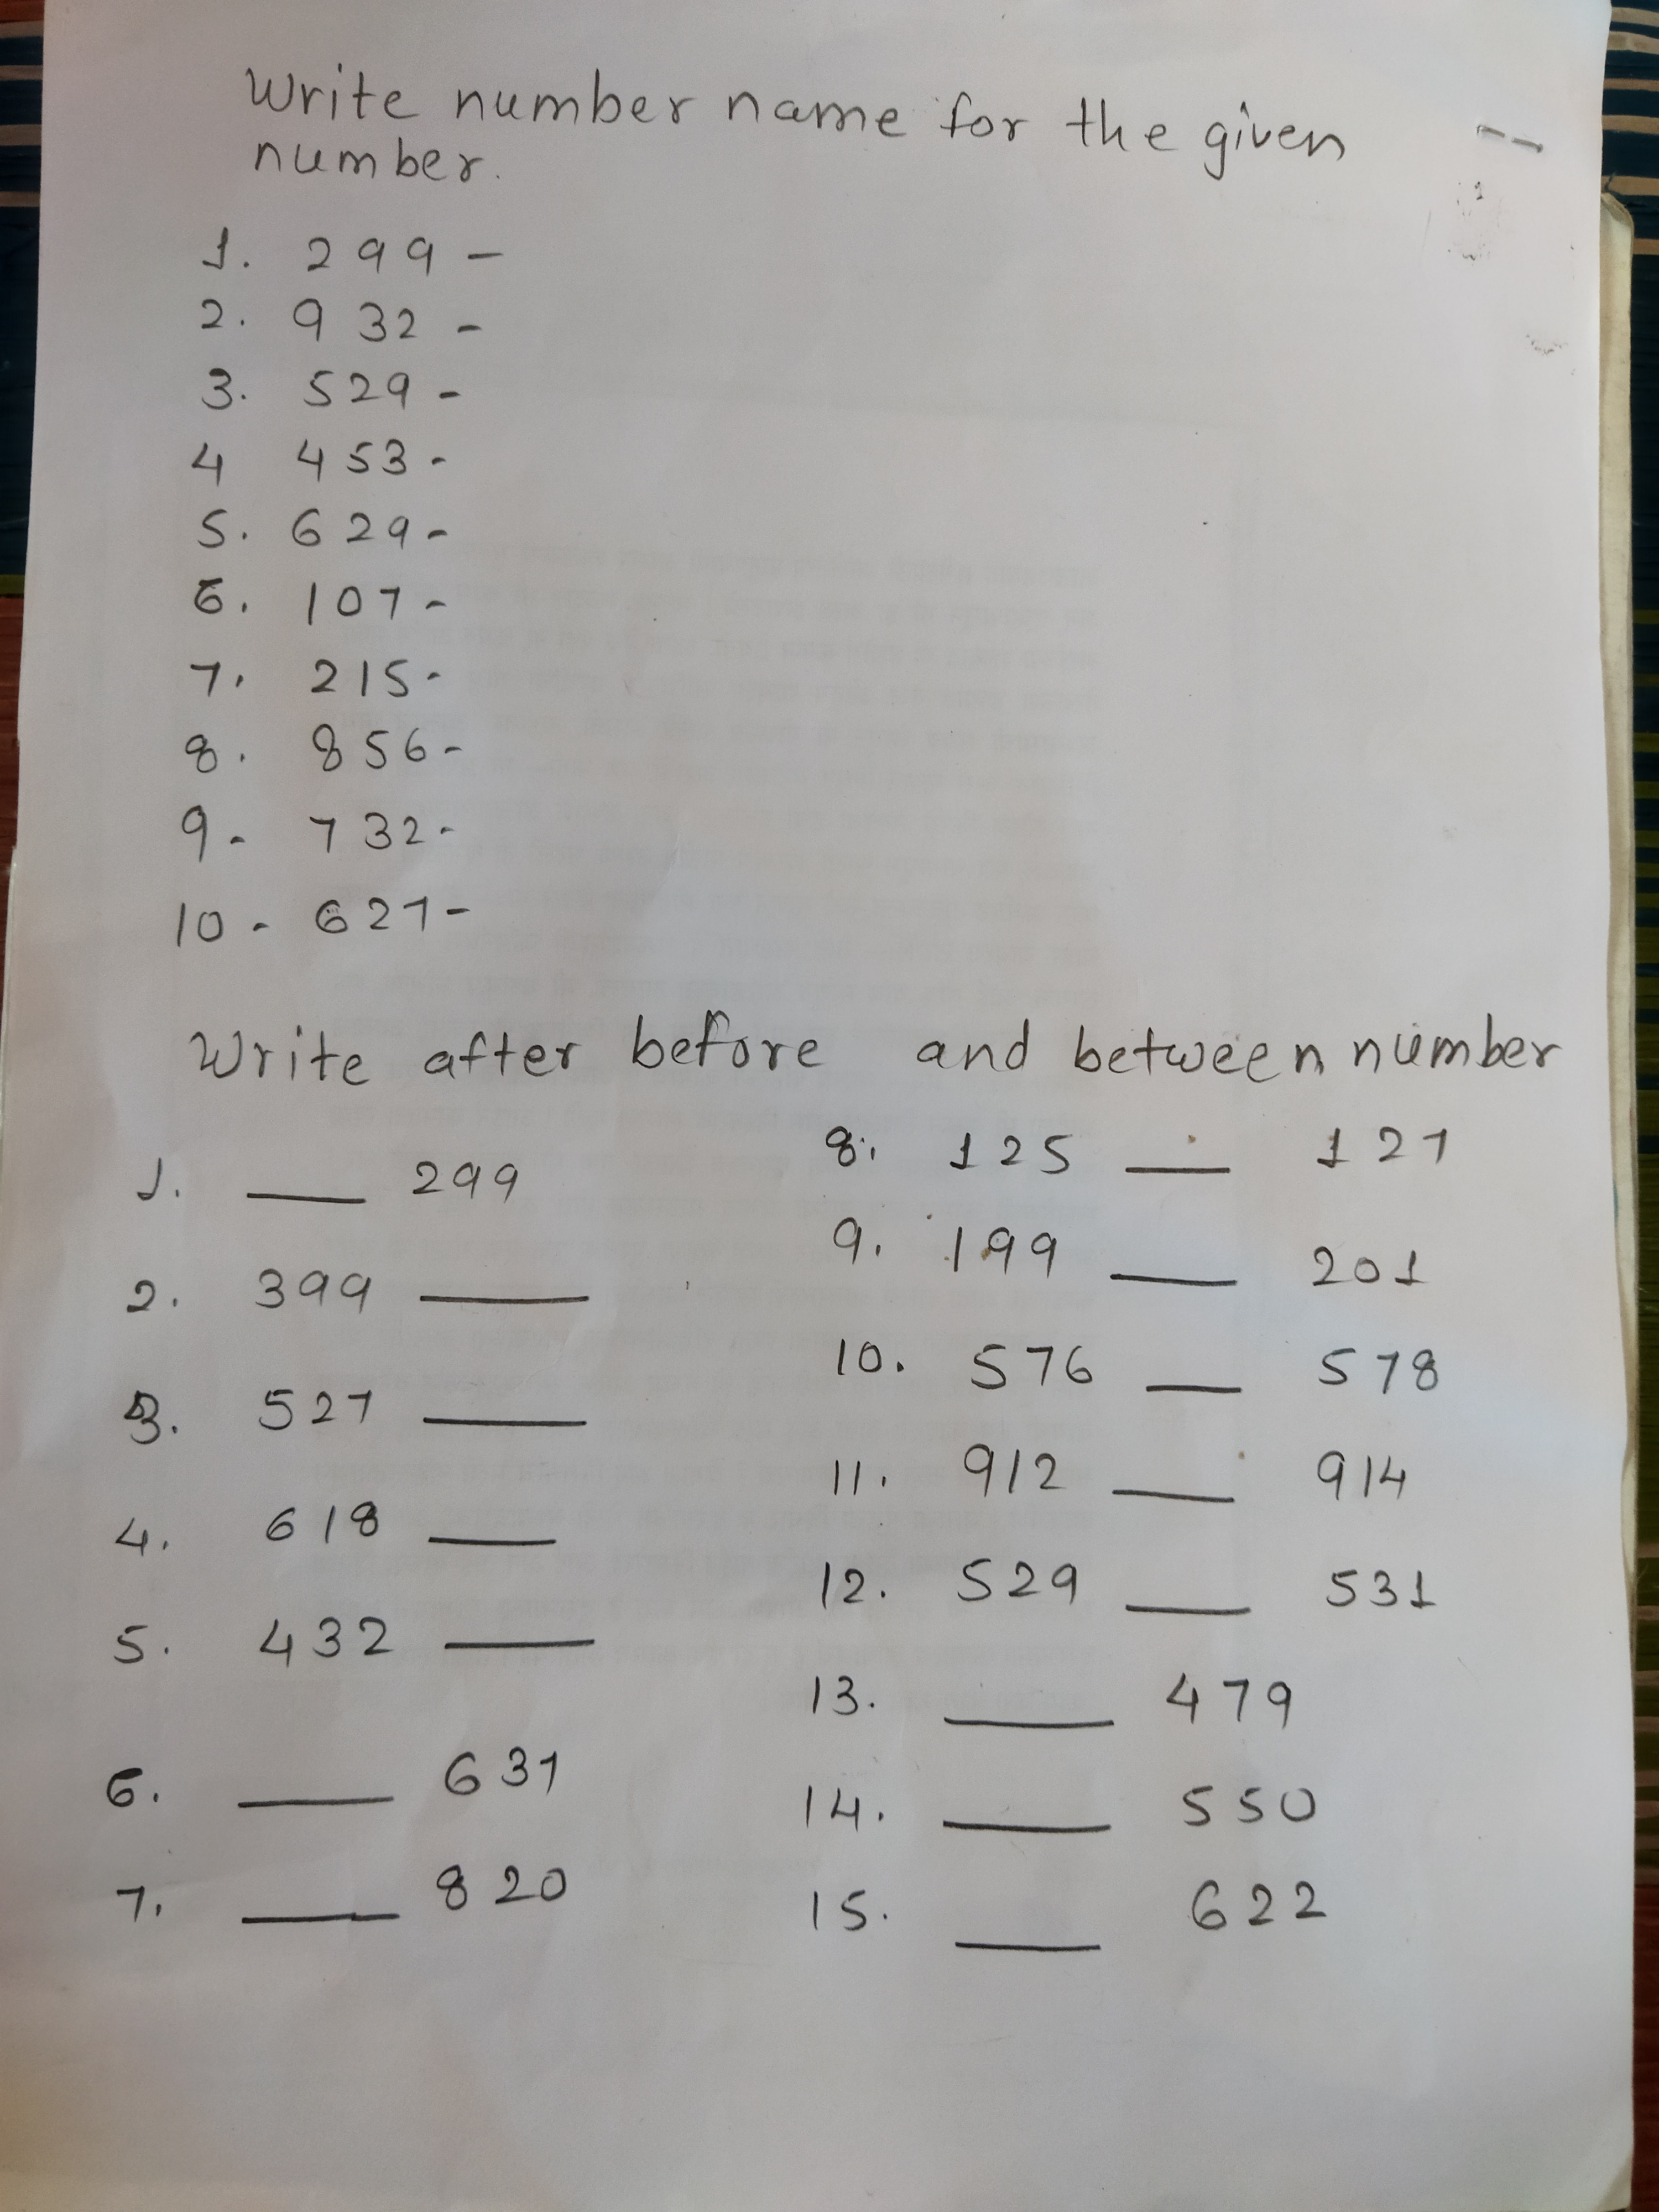 Write number name for the given
number.
1. 299 -
2. 932 -
3. 529 -
4 453 -
5. 629 -
6. 107 -
7. 215 -
8. 856 -
9 - 732 -
10 - 627 -
Write after before and between number
1. ___ 299
2. 399 ___
3. 527 ___
4. 618 ___
5. 432 ___
6. ___ 631
7. ___ 820
8. 125 ___ 127
9. 199 ___ 201
10. 576 ___ 578
11. 912 ___ 914
12. 529 ___ 531
13. ___ 479
14. ___ 550
15. ___ 622